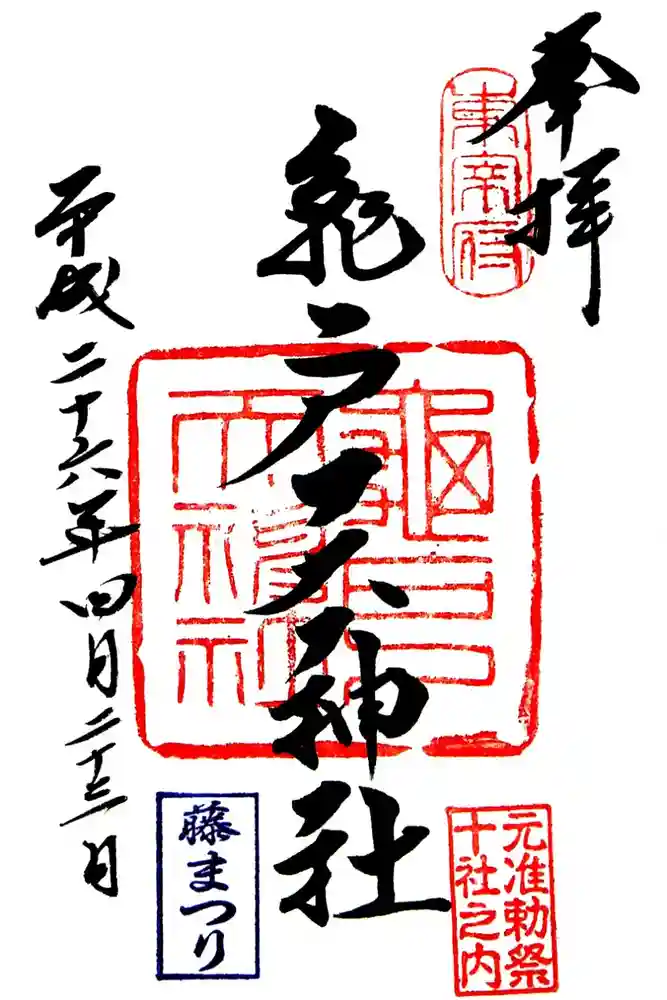 奉拝
東宰府
亀戸天神社
元准勅祭
十社之内
藤まつり
平成二十六年四月二十三日